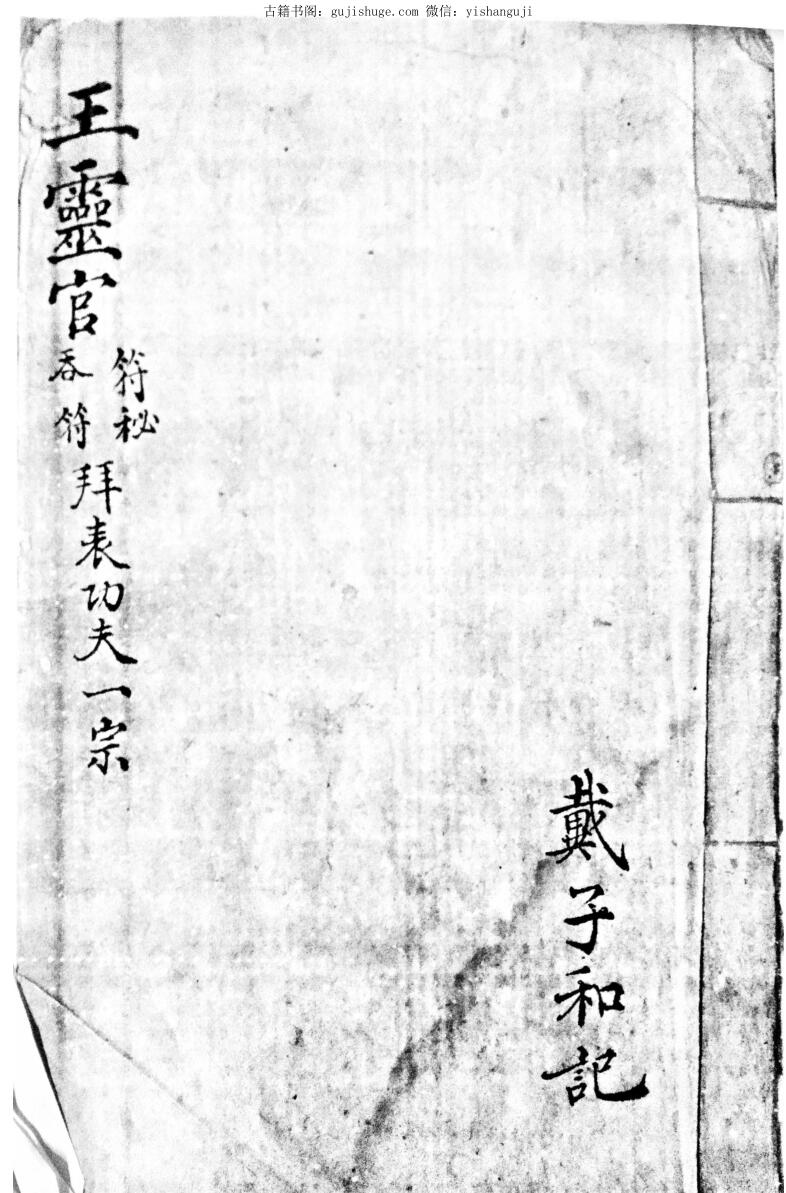 古籍书阁：gujishuge.com 微信：yishanguji
戴子和記
王靈官
符秘
吞符
拜表功夫一宗